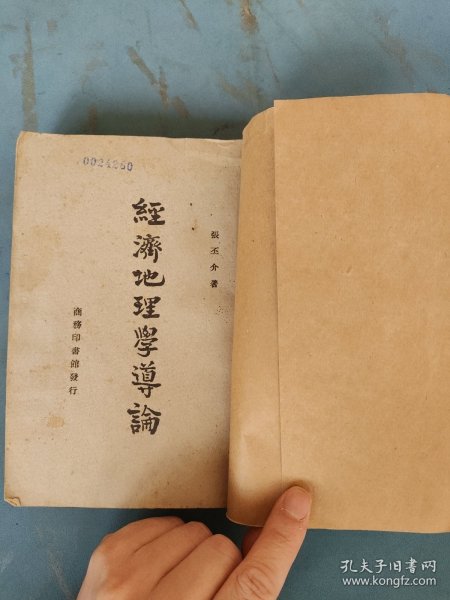 0024260
張丕介著
經濟地理學導論
商務印書館發行
孔夫子旧书网
www.kongfz.com